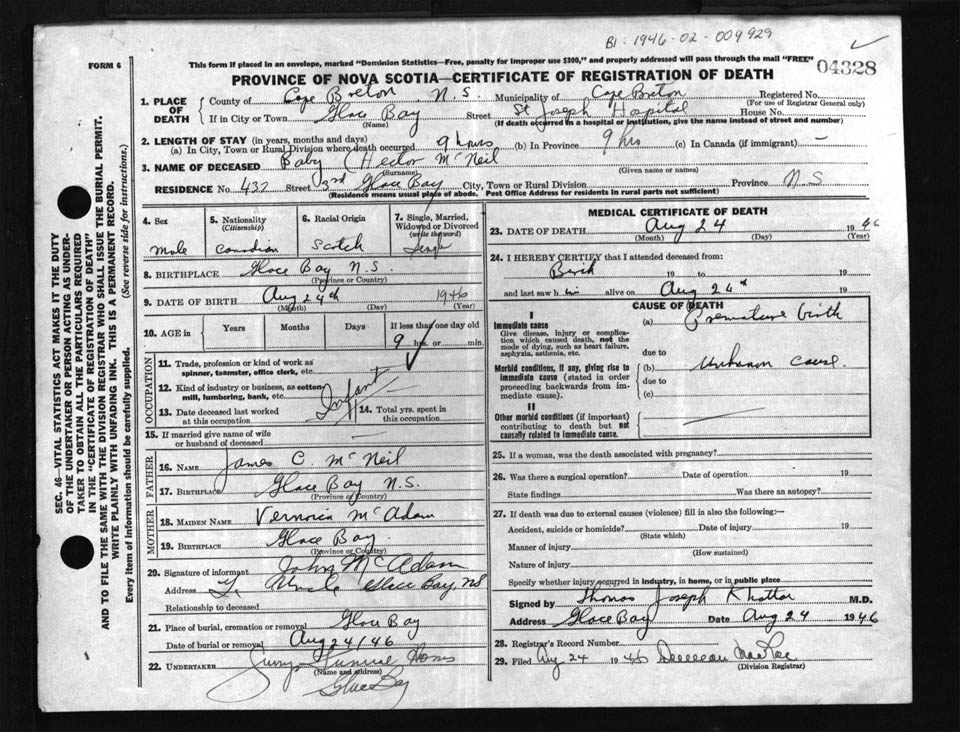 BI: 1946-02-009929
FORM 6
This form if placed in an envelope, marked "Dominion Statistics—Free, penalty for improper use $300," and properly addressed will pass through the mail "FREE"
04328
PROVINCE OF NOVA SCOTIA—CERTIFICATE OF REGISTRATION OF DEATH
1. PLACE OF DEATH
County of Cape Breton, N.S. Municipality of Cape Breton Registered No.
(For use of Registrar General only)
If in City or Town Glace Bay Street St Joseph Hospital House No.
(Name) (If death occurred in a hospital or institution, give the name instead of street and number)
2. LENGTH OF STAY (in years, months and days)
(a) In City, Town or Rural Division where death occurred 9 hours (b) In Province 9 hrs (c) In Canada (if immigrant) —
3. NAME OF DECEASED Baby (Hector McNeil
(Surname) (Given name or names)
RESIDENCE No. 432 Street 3rd Glace Bay City, Town or Rural Division Province N.S
(Residence means usual place of abode. Post Office Address for residents in rural parts not sufficient)
4. Sex
Male
5. Nationality
(Citizenship)
Canadian
6. Racial Origin
Scotch
7. Single, Married, Widowed or Divorced
(write the word)
Single
8. BIRTHPLACE Glace Bay N.S.
(Province or Country)
9. DATE OF BIRTH Aug 24th 1946
(Month) (Day) (Year)
10. AGE in Years Months Days If less than one day old
9 hrs. or min.
OCCUPATION
11. Trade, profession or kind of work as spinner, teamster, office clerk, etc.
12. Kind of industry or business, as cotton mill, lumbering, bank, etc.
Infant
13. Date deceased last worked at this occupation
14. Total yrs. spent in this occupation
15. If married give name of wife or husband of deceased
FATHER
16. NAME James C. McNeil
17. BIRTHPLACE Glace Bay N.S.
(Province or Country)
MOTHER
18. MAIDEN NAME Vernoica McAdam
19. BIRTHPLACE Glace Bay
(Province or Country)
20. Signature of informant John McAdam
Address Glace Bay, NS
Uncle
Relationship to deceased
21. Place of burial, cremation or removal Glace Bay
Date of burial or removal Aug 24/46
22. UNDERTAKER Funeral Home
(Name and address)
Glace Bay
MEDICAL CERTIFICATE OF DEATH
23. DATE OF DEATH Aug 24 1946
(Month) (Day) (Year)
24. I HEREBY CERTIFY that I attended deceased from:
Birth 19 to 19
and last saw h im alive on Aug 24th 19
CAUSE OF DEATH
I
Immediate cause
Give disease, injury or complication which caused death, not the mode of dying, such as heart failure, asphyxia, asthenia, etc.
(a) Premature birth
due to
Morbid conditions, if any, giving rise to immediate cause (stated in order proceeding backwards from immediate cause).
(b) Unknown cause.
due to
(c)
II
Other morbid conditions (if important) contributing to death but not causally related to immediate cause.
25. If a woman, was the death associated with pregnancy?
26. Was there a surgical operation? Date of operation 19
State findings Was there an autopsy?
27. If death was due to external causes (violence) fill in also the following:—
Accident, suicide or homicide? Date of injury 19
(State which)
Manner of injury
(How sustained)
Nature of injury
Specify whether injury occurred in industry, in home, or in public place
Signed by Thomas Joseph Khattar M.D.
Address Glace Bay Date Aug 24 1946
28. Registrar's Record Number
29. Filed Aug 24 1946 MacRae
(Division Registrar)
SEC. 46—VITAL STATISTICS ACT MAKES IT THE DUTY
OF THE UNDERTAKER OR PERSON ACTING AS UNDER-
TAKER TO OBTAIN ALL THE PARTICULARS REQUIRED
IN THE "CERTIFICATE OF REGISTRATION OF DEATH"
AND TO FILE THE SAME WITH THE DIVISION REGISTRAR WHO SHALL ISSUE THE BURIAL PERMIT.
WRITE PLAINLY WITH UNFADING INK. THIS IS A PERMANENT RECORD.
Every item of information should be carefully supplied. (See reverse side for instructions.)